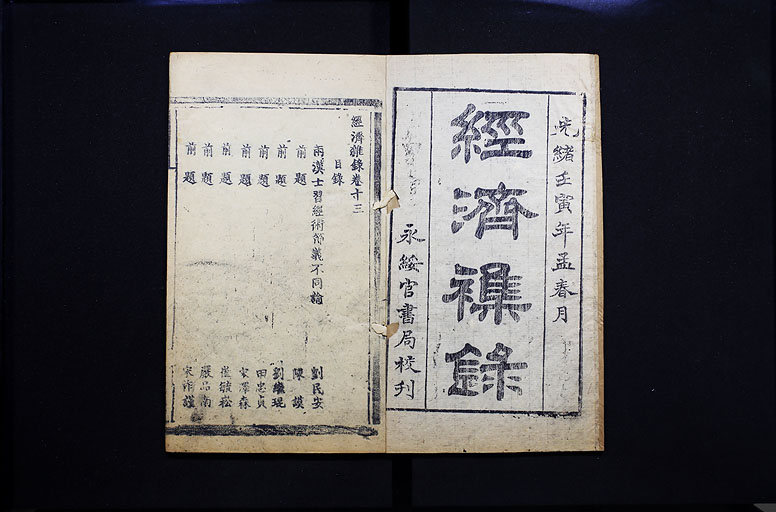 光緒壬寅年孟春月
經濟襍錄
永綏官書局校刊
經濟雜錄卷十三
目錄
兩漢士習經術節義不同論 劉民安
前題 陳謨
前題 劉繼琨
前題 田忠貞
前題 澤森
前題 松
前題 嚴品南
前題 宋作謹